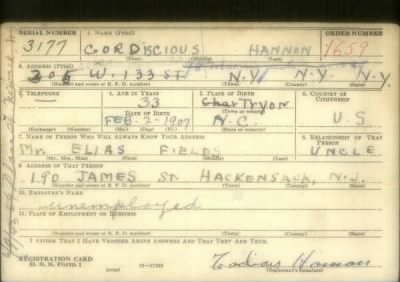 SERIAL NUMBER 1. NAME (Print) ORDER NUMBER
3177 CORDISCIOUS HANNON 1659
(First) (Middle) (Last)
2. ADDRESS (Print)
206 W. 133 ST. N.Y. N.Y. N.Y.
(Number and street or R. F. D. number) (Town) (County) (State)
3. TELEPHONE 4. AGE IN YEARS 5. PLACE OF BIRTH 6. COUNTRY OF CITIZENSHIP
33 Char Tryon
DATE OF BIRTH (Town or county)
FEB. 2-1907 N.C. U S
(Exchange) (Number) (Mo.) (Day) (Yr.) (State or country)
7. NAME OF PERSON WHO WILL ALWAYS KNOW YOUR ADDRESS 8. RELATIONSHIP OF THAT PERSON
Mr. ELIAS FIELDS UNCLE
(Mr., Mrs., Miss) (First) (Middle) (Last)
9. ADDRESS OF THAT PERSON
190 JAMES ST. HACKENSACK, N.J.
(Number and street or R. F. D. number) (Town) (County) (State)
10. EMPLOYER'S NAME
unemployed
11. PLACE OF EMPLOYMENT OR BUSINESS
(Number and street or R. F. D. number) (Town) (County) (State)
I AFFIRM THAT I HAVE VERIFIED ABOVE ANSWERS AND THAT THEY ARE TRUE.
REGISTRATION CARD
D. S. S. Form 1 (over) 16-17105 (Registrant's signature)